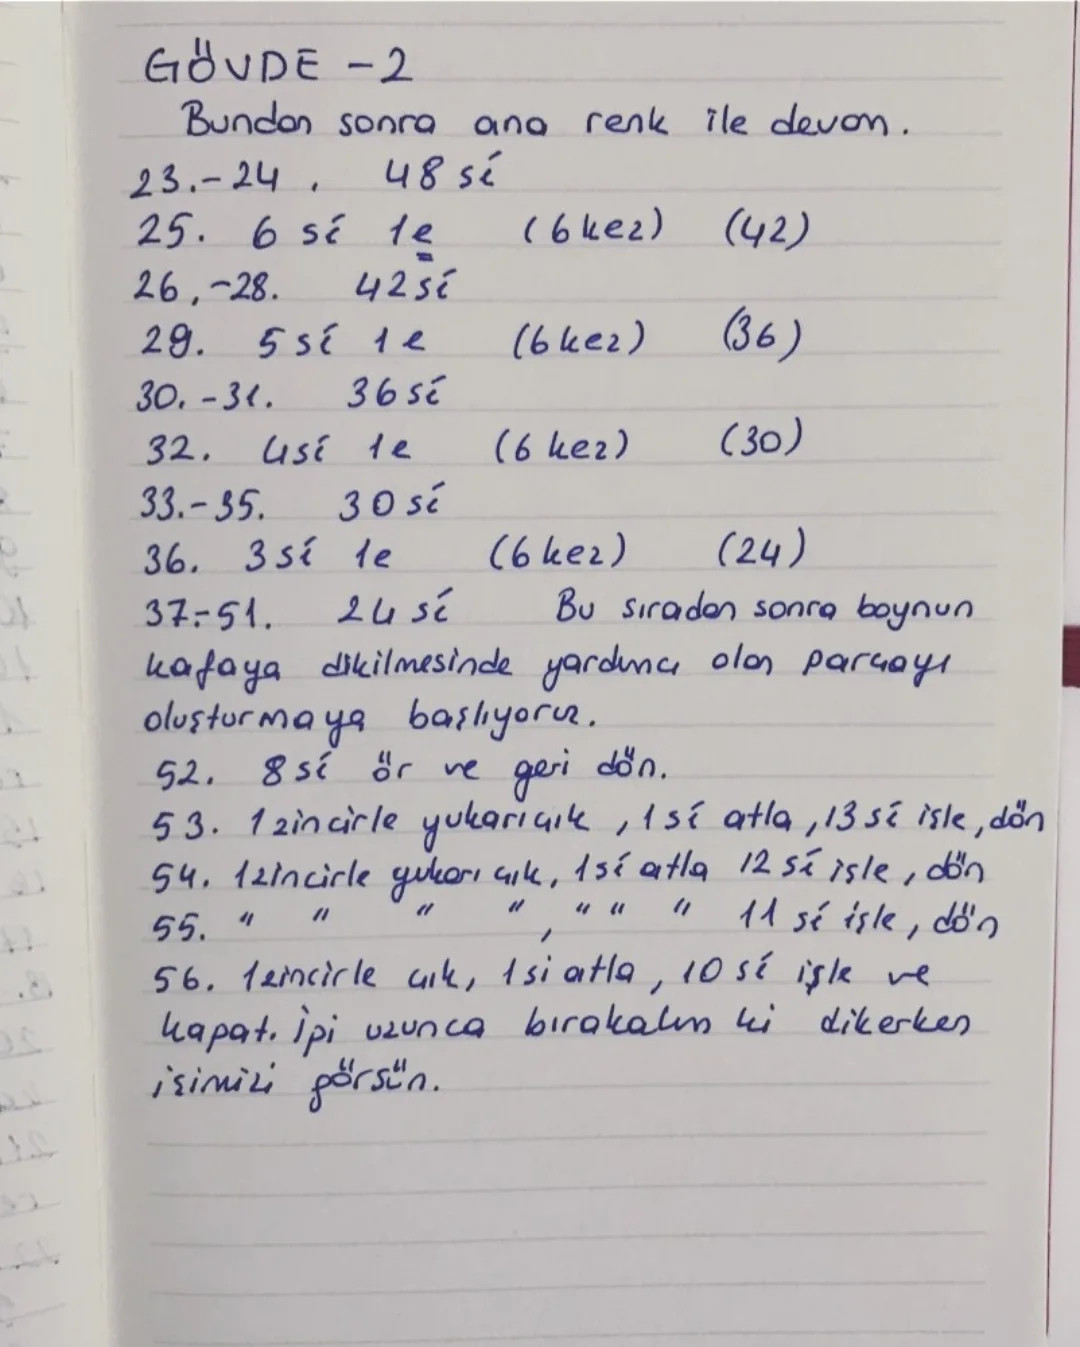 GÖVDE - 2
Bundan sonra ana renk ile devam.
23.-24. 48 si
25. 6 si 1e (6 kez) (42)
26.-28. 42 si
29. 5 si 1e (6 kez) (36)
30.-31. 36 si
32. 4si 1e (6 kez) (30)
33.-35. 30 si
36. 3 si 1e (6 kez) (24)
37.-51. 24 si Bu sıradan sonra boynun
kafaya dikilmesinde yardımcı olan parçayı
oluşturmaya başlıyoruz.
52. 8 si ör ve geri dön.
53. 1 zincirle yukarı çık, 1 si atla, 13 si işle, dön
54. 1zincirle yukarı çık, 1si atla 12 si işle, dön
55. " " " ", " " " 11 si işle, dön
56. 1zincirle çık, 1si atla, 10 si işle ve
kapat. İpi uzunca bırakalım ki dikerken
işimizi görsün.